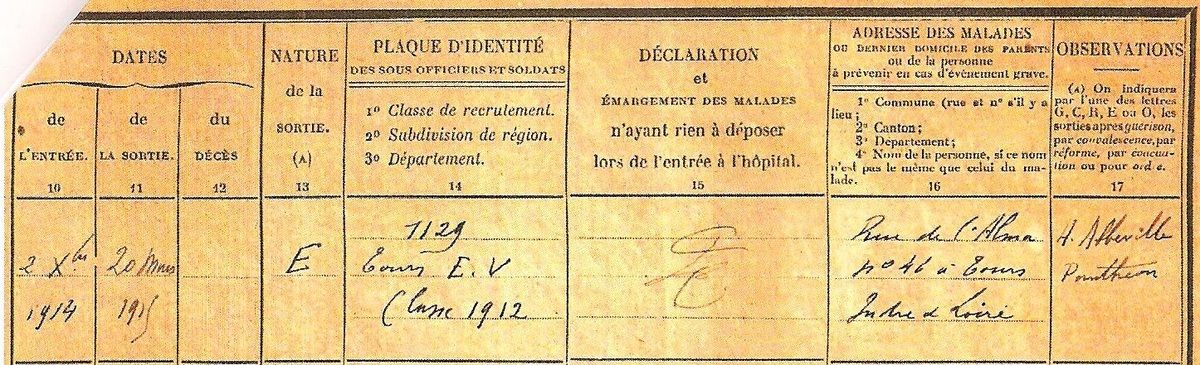 DATES
de
L'ENTRÉE.
10
de
LA SORTIE.
11
du
DÉCÈS
12
NATURE
de la
SORTIE.
(A)
13
PLAQUE D'IDENTITÉ
DES SOUS OFFICIERS ET SOLDATS
1º Classe de recrutement.
2º Subdivision de région.
3º Département.
14
DÉCLARATION
et
ÉMARGEMENT DES MALADES
n'ayant rien à déposer
lors de l'entrée à l'hôpital.
15
ADRESSE DES MALADES
OU DERNIER DOMICILE DES PARENTS
ou de la personne
à prévenir en cas d'évènement grave.
1º Commune (rue et nº s'il y a
lieu ;
2º Canton ;
3º Département ;
4º Nom de la personne, si ce nom
n'est pas le même que celui du ma-
lade.
16
OBSERVATIONS
(A) On indiquera
par l'une des lettres
G, C, R, E ou O, les
sorties après guérison,
par convalescence, par
réforme, par évacua-
tion ou pour ordre.
17
2 Xbre
1914
20 Mars
1915
E
1129
Tours E. V
Classe 1912
Rue de l'Alma
nº 46 à Tours
Indre & Loire
A. Abbeville